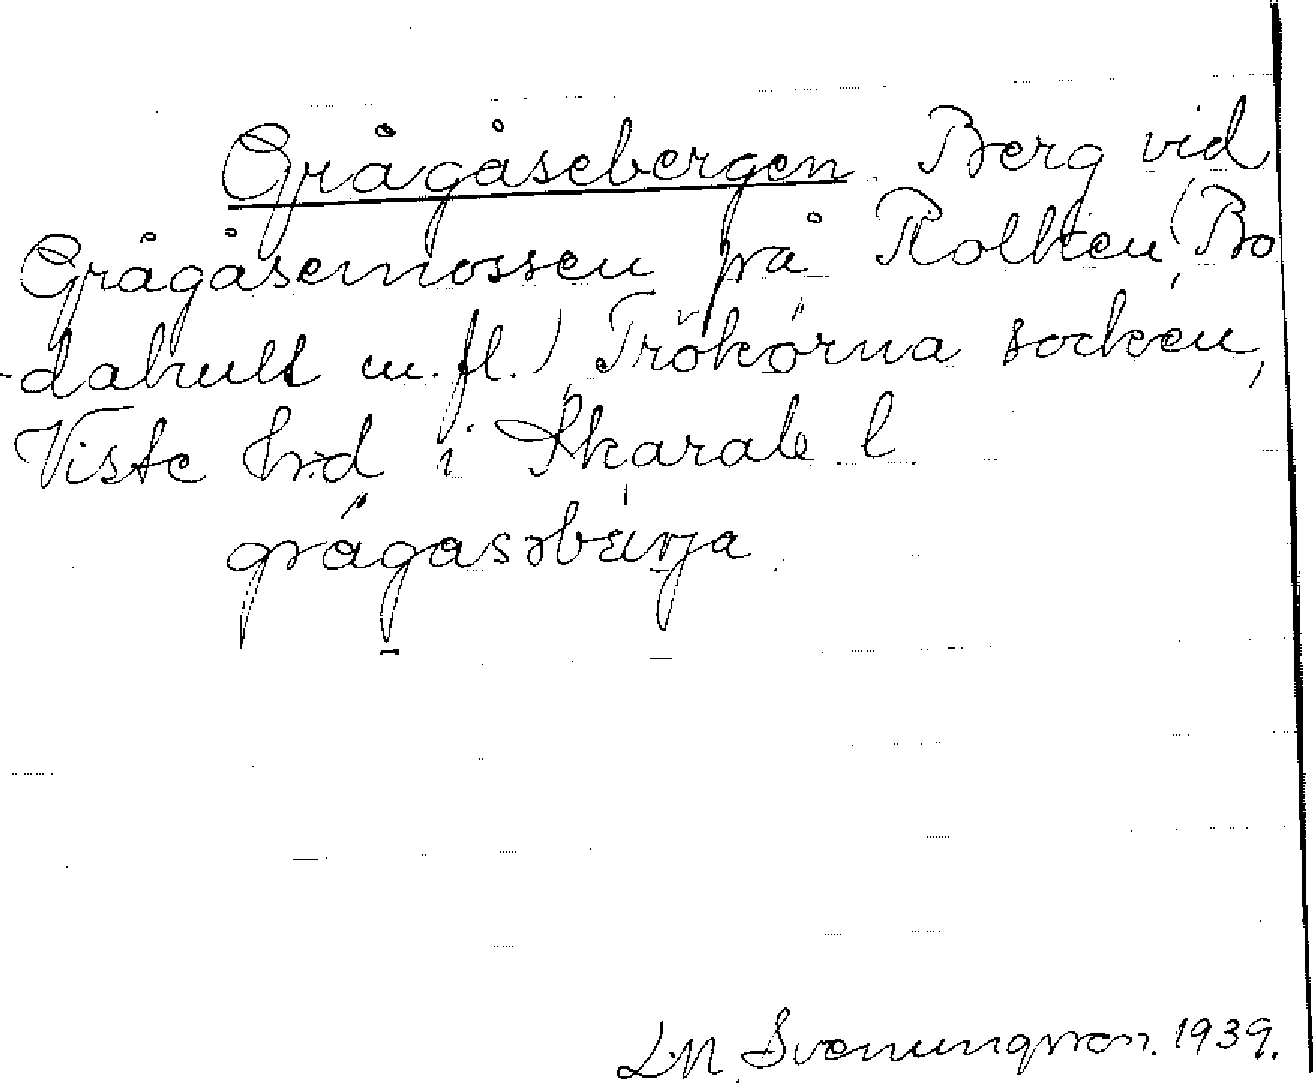 Grågåsebergen. Berg vid
Grågåsemossen på Rolken (Bo
-dahult m.fl.) Trökörna socken,
Viste hrd i Skarab. l
grågasəbärja.
L.M. Svenungsson. 1939.